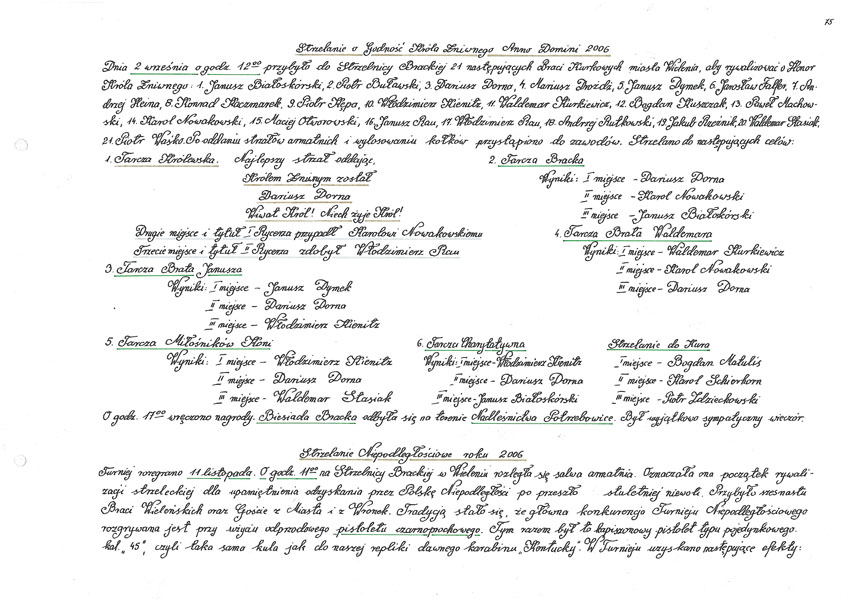 75
Strzelanie o Godność Króla Żniwnego Anno Domini 2006
Dnia 2 września o godz. 12 00 przybyło do Strzelnicy Brackiej 21 następujących Braci Kurkowych miasta Wielenia, aby rywalizować o Honor
Króla Żniwnego: 1. Janusz Białoskórski, 2. Piotr Buławski, 3. Dariusz Dorna, 4. Mariusz Droździ, 5. Janusz Dymek, 6. Jarosław Falfer, 7. An-
drzej Heina, 8. Konrad Kaczmarek, 9. Piotr Kępa, 10. Włodzimierz Kienitz, 11. Waldemar Kurkiewicz, 12. Bogdan Kuszczak, 13. Paweł Machow-
ski, 14. Karol Nowakowski, 15. Maciej Otworowski, 16. Janusz Rau, 17. Włodzimierz Rau, 18. Andrzej Rutkowski, 19. Jakub Rzeźnik, 20. Waldemar Stasiak,
21. Piotr Waśko. Po oddaniu strzałów armatnich i wylosowaniu kołków przystąpiono do zawodów. Strzelano do następujących celów:
1. Tarcza Królewska. Najlepszy strzał oddając,
Królem Żniwnym został
Dariusz Dorna
Wiwat Król! Niech żyje Król!
Drugie miejsce i tytuł I Rycerza przypadł Karolowi Nowakowskiemu
Trzecie miejsce i tytuł II Rycerza zdobył Włodzimierz Rau
2. Tarcza Bracka
Wyniki: I miejsce - Dariusz Dorna
II miejsce - Karol Nowakowski
III miejsce - Janusz Białoskórski
3. Tarcza Brata Janusza
Wyniki: I miejsce - Janusz Dymek
II miejsce - Dariusz Dorna
III miejsce - Włodzimierz Kienitz
4. Tarcza Brata Waldemara
Wyniki: I miejsce - Waldemar Kurkiewicz
II miejsce - Karol Nowakowski
III miejsce - Dariusz Dorna
5. Tarcza Miłośników Koni
Wyniki: I miejsce - Włodzimierz Kienitz
II miejsce - Dariusz Dorna
III miejsce - Waldemar Stasiak
6. Tarcza Charytatywna
Wyniki: I miejsce - Włodzimierz Kienitz
II miejsce - Dariusz Dorna
III miejsce - Janusz Białoskórski
Strzelanie do Kura
I miejsce - Bogdan Matulis
II miejsce - Karol Schierhorn
III miejsce - Piotr Zdziechowski
O godz. 17 00 wręczono nagrody. Biesiada Bracka odbyła się na terenie Nadleśnictwa Potrzebowice. Był wyjątkowo sympatyczny wieczór.
Strzelanie Niepodległościowe roku 2006
Turniej rozegrano 11 listopada. O godz. 11 00 na Strzelnicy Brackiej w Wieleniu rozległa się salwa armatnia. Oznaczała ona początek rywali-
zacji strzeleckiej dla upamiętnienia odzyskania przez Polskę Niepodległości po przeszło stuletniej niewoli. Przybyło szesnastu
Braci Wieleńskich oraz Goście z Miasta i z Wronek. Tradycją stało się, że główna konkurencja Turnieju Niepodległościowego
rozgrywana jest przy użyciu odprzodowego pistoletu czarnoprochowego. Tym razem był to kapiszonowy pistolet typu pojedynkowego.
kal. "45", czyli taka sama kula jak do naszej repliki dawnego karabinu "Kentucky". W Turnieju uzyskano następujące efekty: